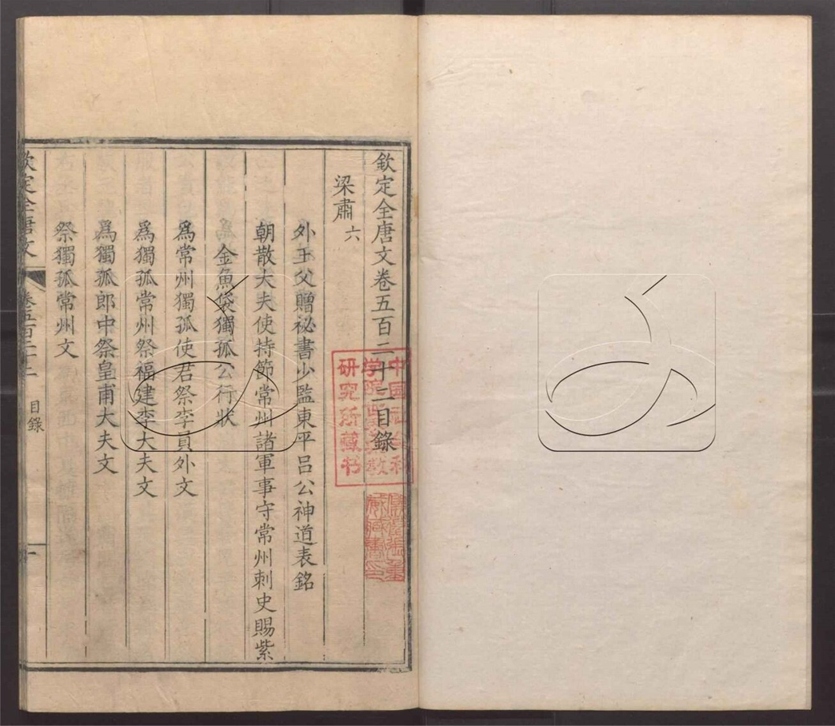 欽定全唐文卷五百二十二目錄
梁肅六
外王父贈祕書少監東平呂公神道表銘
朝散大夫使持節常州諸軍事守常州刺史賜紫
金魚袋獨孤公行狀
爲常州獨孤使君祭李員外文
爲獨孤常州祭福建李大夫文
爲獨孤郎中祭皇甫大夫文
祭獨孤常州文
欽定全唐文
卷五百二十二
目錄
一
研究所藏书